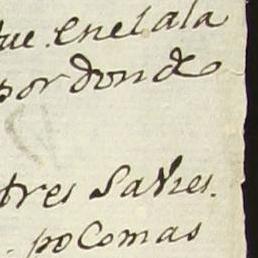 que. enel ala
por donde
tres Saves.
po Comas